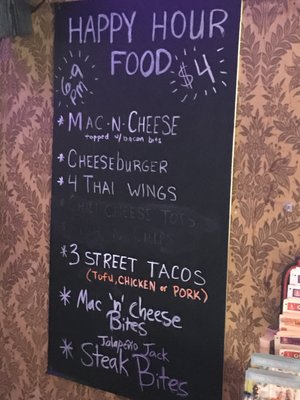 HAPPY HOUR
FOOD
6-9
PM
$4
* MAC-N-CHEESE
topped w/bacon bits
* CHEESEBURGER
* 4 THAI WINGS
CHILI CHEESE TOTS
* 3 STREET TACOS
(TOFU, CHICKEN or PORK)
* Mac 'n' Cheese
Bites
Jalapeño Jack
* Steak Bites